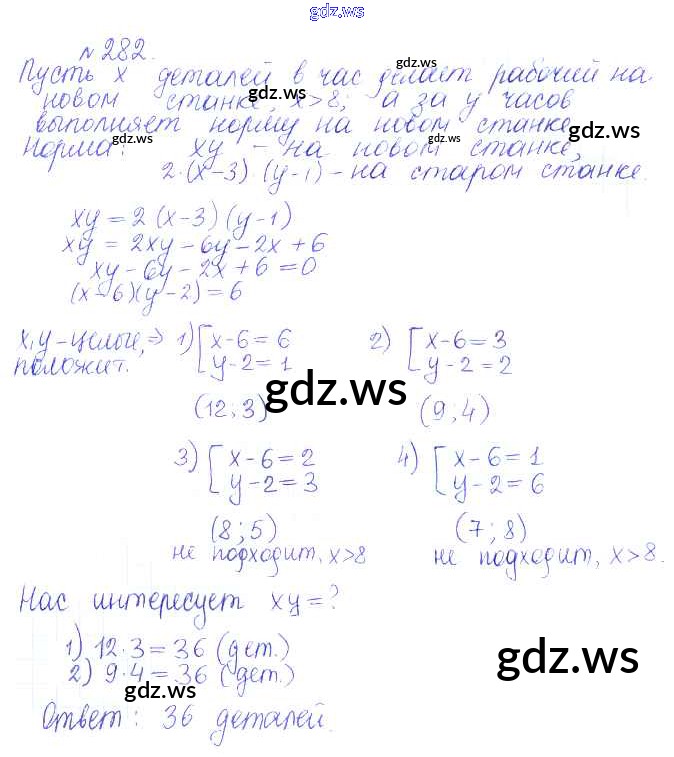 gdz.ws
№ 282.
Пусть x деталей в час делает рабочий на
новом станке, x>8; а за y часов
выполняет норму на новом станке,
Норма: xy - на новом станке,
2·(x-3)(y-1) - на старом станке.
xy = 2(x-3)(y-1)
xy = 2xy - 6y - 2x + 6
xy - 6y - 2x + 6 = 0
(x-6)(y-2) = 6
x,y - целые, положит. ⇒ 1) [x-6=6 2) [x-6=3
y-2=1 y-2=2
(12;3) (9;4)
3) [x-6=2 4) [x-6=1
y-2=3 y-2=6
(8;5) (7;8)
не подходит, x>8 не подходит, x>8.
Нас интересует xy=?
1) 12·3=36 (дет.)
2) 9·4=36 (дет.)
Ответ: 36 деталей.
gdz.ws
gdz.ws
gdz.ws
gdz.ws
gdz.ws
gdz.ws
gdz.ws
gdz.ws
gdz.ws
gdz.ws
gdz.ws